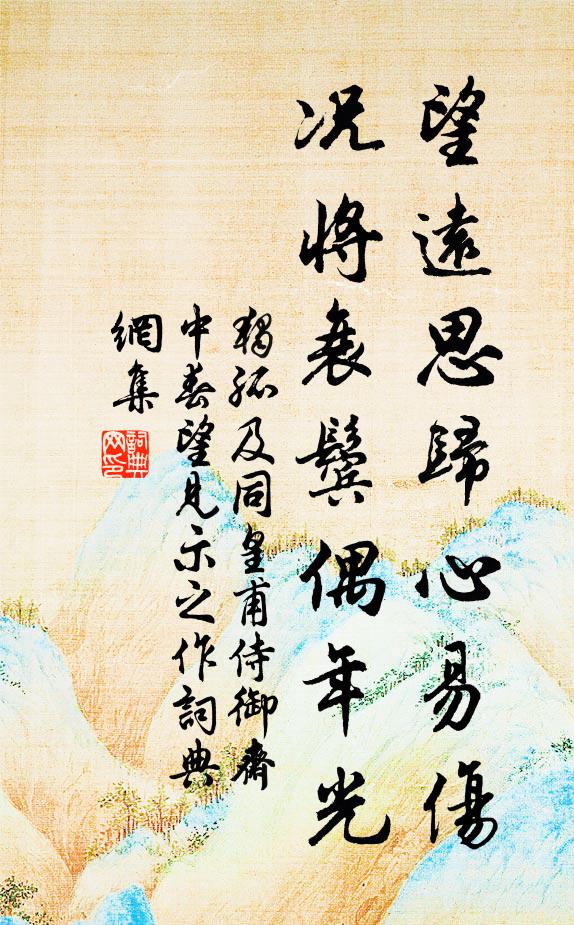 望遠思歸心易傷
况將衰鬢偶年光
獨孤及同皇甫侍御齋
中春望見示之作詞典
網集
詞典网印